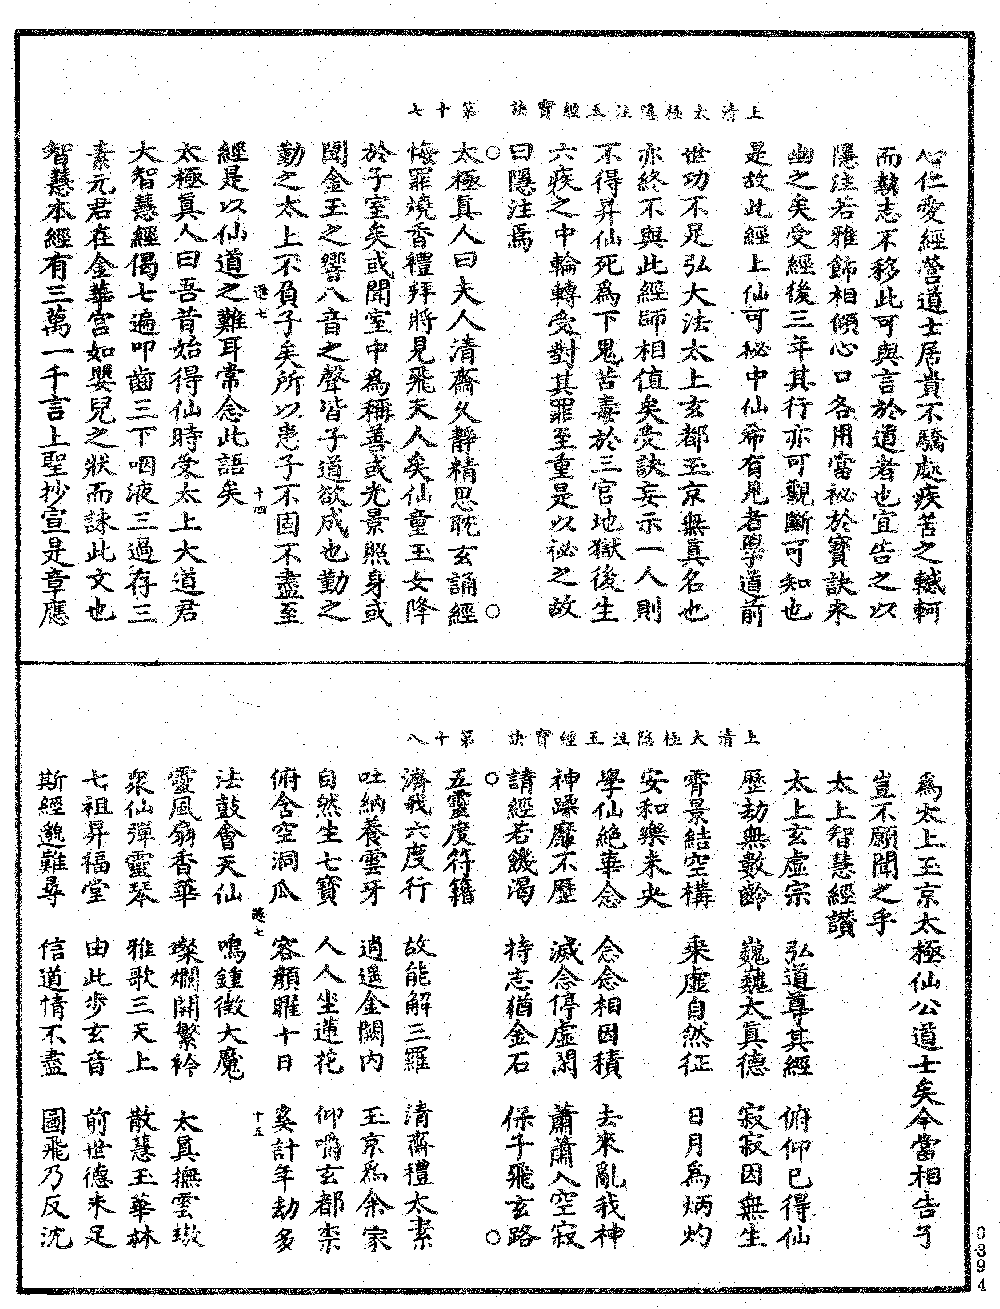 上清太極隱注玉經寶訣　第十七
心仁愛經營道士居貴不驕處疾苦之轗軻
而執志不移此可與言於道者也宜告之以
隱注若雅飾相傾心口各用當祕於寶訣永
幽之矣受經後三年其行亦可觀斷可知也
是故此經上仙可祕中仙希有見者學道前
世功不足弘大法太上玄都玉京無真名也
亦終不與此經師相值矣受訣妄示一人則
不得昇仙死為下鬼苦毒於三官地獄後生
六疾之中輪轉受對其罪至重是以祕之故
曰隱注焉
太極真人曰夫人清齋久靜精思耽玄誦經
悔罪燒香禮拜將見飛天人矣仙童玉女降
於子室矣或聞室中為稱善或光景照身或
聞金玉之響八音之聲皆子道欲成也勤之
勤之太上不負子矣所以患子不固不盡至
遜七　十四
經是以仙道之難耳常念此語矣
太極真人曰吾昔始得仙時受太上大道君
大智慧經偈七遍叩齒三下咽液三過存三
素元君在金華宮如嬰兒之狀而誦此文也
智慧本經有三萬一千言上聖抄宣是章應
上清太極隱注玉經寶訣　第十八
為太上玉京太極仙公道士矣今當相告子
豈不願聞之乎
太上智慧經讚
太上玄虛宗　弘道尊其經　俯仰已得仙
歷劫無數齡　巍巍太真德　寂寂因無生
霄景結空構　乘虛自然征　日月為炳灼
安和樂未央
學仙絕華念　念念相因積　去來亂我神
神躁靡不歷　滅念停虛閑　蕭蕭入空寂
請經若饑渴　持志猶金石　保子飛玄路
五靈度符籍
濟我六度行　故能解三羅　清齋禮太素
吐納養雲牙　逍遙金闕內　玉京為余家
自然生七寶　人人坐蓮花　仰嚼玄都㮈
俯含空洞瓜　容顏耀十日　奚計年劫多
遜七　十五
法鼓會天仙　鳴鍾徵大魔
靈風扇香華　璨爛開繁衿　太真撫雲璈
眾仙彈靈琴　雅歌三天上　散慧玉華林
七祖昇福堂　由此步玄音　前世德未足
斯經邈難尋　信道情不盡　圖飛乃反沈
0394